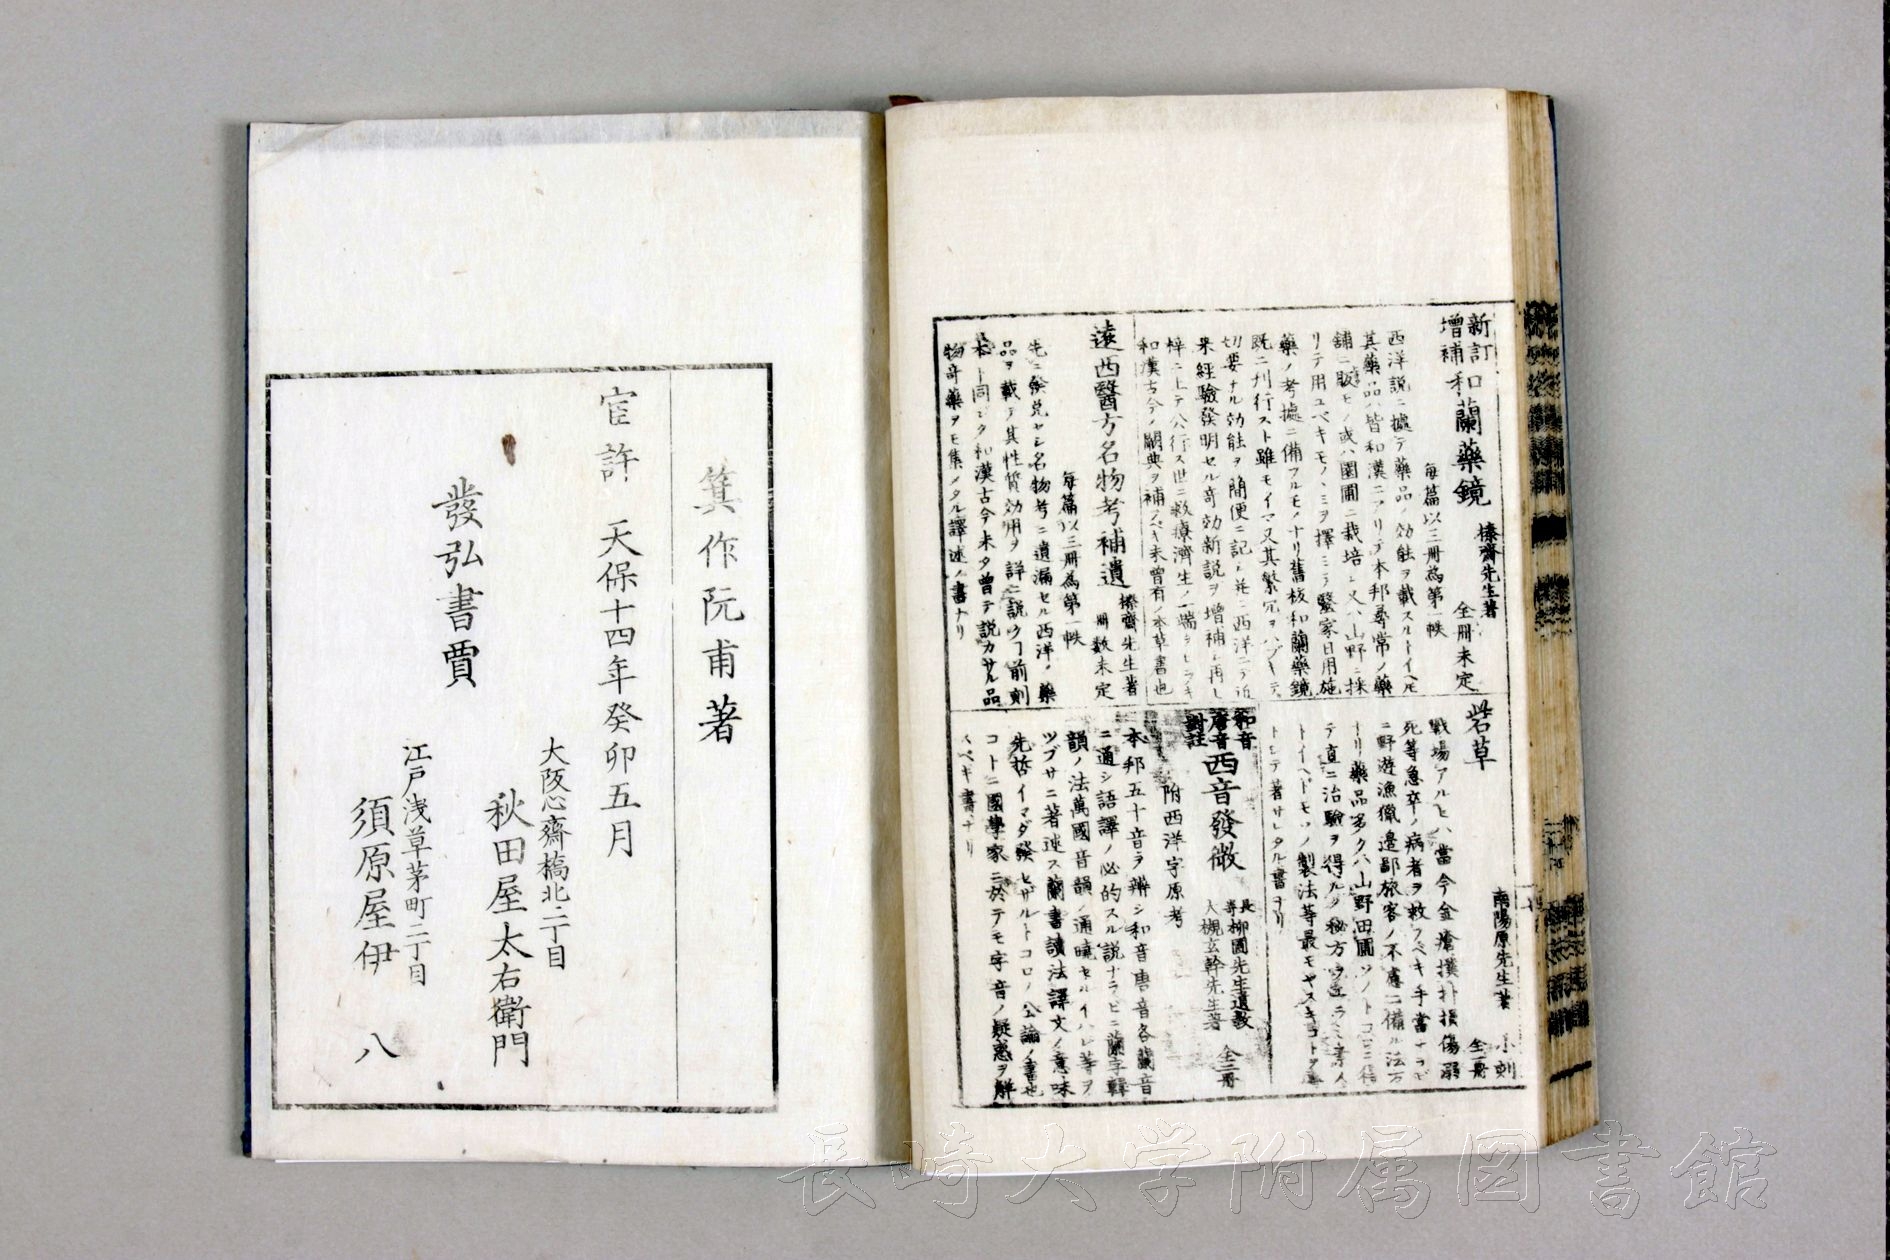 新訂
增補
和蘭藥鏡
榛齋先生著
全冊未定
每篇以三冊為第一帙
西洋說ニ據テ藥品ノ効能ヲ載スルトイヘ𪜈
其藥品ハ皆和漢ニアリテ本邦尋常ノ藥
舖ニ販モノ或ハ園圃ニ栽培シ又ハ山野ニ採
リテ用ユベキモノヽミヲ擇ミテ醫家日用施
藥ノ考據ニ備フルモノナリ舊板和蘭藥鏡
既ニ刊行スト雖モイマ又其繁冗ヲハブキテ
切要ナル効能ヲ簡便ニ記シ并ニ西洋ニテ近
来經驗發明セル奇効新説ヲ增補シ再ヒ
梓ニ上テ公行ス世ニ救療濟生ノ一端ヲヒラキ
和漢古今ノ闕典ヲ補フベキ未曾有ノ本草書也
遠西醫方名物考補遺
榛齋先生著
冊数未定
每篇以三冊為第一帙
先ニ發兌セシ名物考ニ遺漏セル西洋ノ藥
品ヲ載テ其性質効用ヲ詳ニ説ク前刻
本ト同ジク和漢古今未タ曾テ説カサル品
物奇藥ヲモ集メタル譯述ノ書ナリ
砦草
南陽原先生著
小刻
全一冊
戰場アルヒハ當今金瘡撲扑損傷溺
死等急卒ノ病者ヲ救フベキ手當ナラビ
ニ野遊漁獵邊鄙旅客ノ不慮ニ備ル法方
ナリ藥品多クハ山野田圃
テ直ニ治驗ヲ得ルノ秘方
トイヘドモソノ製法等最モヤスキコトヲ
トシテ著サレタル書ナリ
和音
唐音
對註
西音發微
長柳圃先生遺教
大槻玄幹先生著
全二冊
附西洋字原考
本邦五十音ヲ辨シ和音唐音各蘭音
ニ通シ語譯ノ必的スル説ナラビニ蘭字韓
韻ノ法萬國音韻ノ通曉セルイハレ等ヲ
ツブサニ著述ス蘭書讀法譯文ノ意味
先哲イマダ發セザルトコロノ公論ノ書也
コトニ國學家ニ於テモ字音ノ疑惑ヲ解
スベキ書ナリ
箕作阮甫著
官許 天保十四年癸卯五月
大阪心齋橋北二丁目
秋田屋太右衛門
發弘書賈
江戸浅草茅町二丁目
須原屋伊八
長崎大学附属図書館